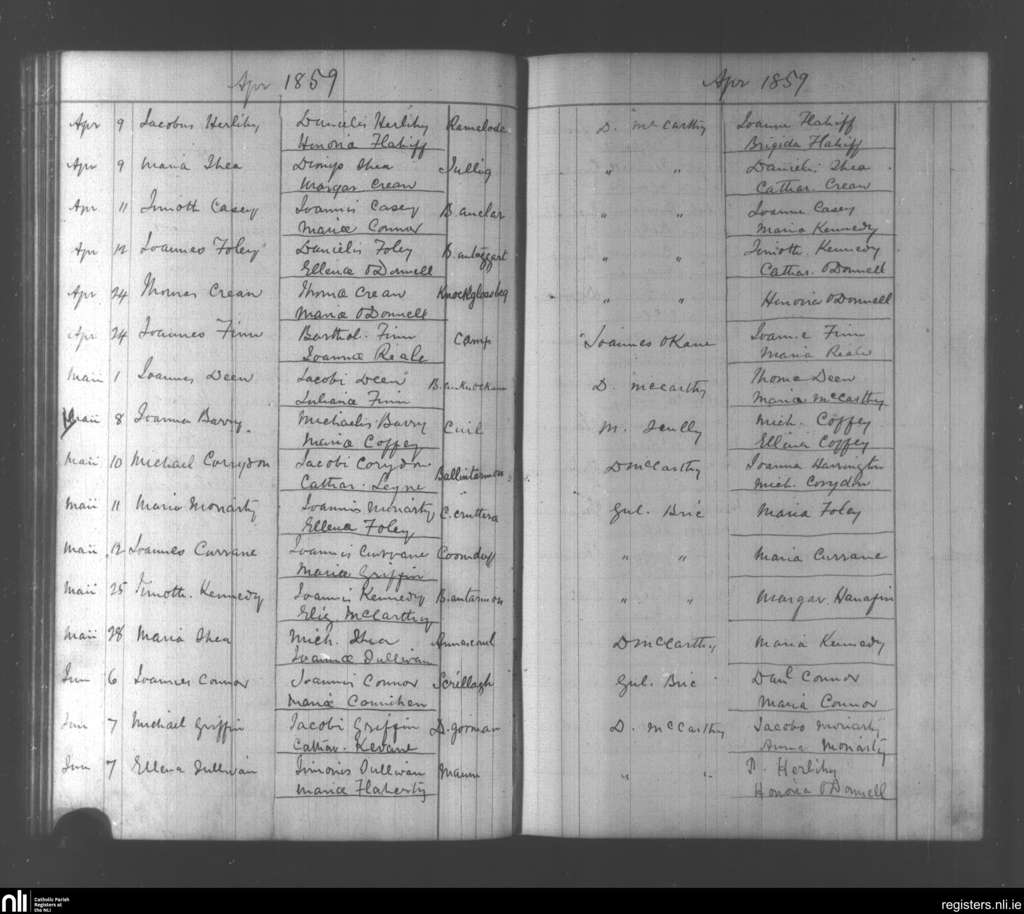 Apr 1859
Apr 9 Jacobus Herlihy Danielis Herlihy
Honoria Flahiff
Apr 9 Maria Shea Dionys Shea
Margar. Crean
Apr 11 Timoth Casey Joannis Casey B.anclar
Mariæ Connor
Apr 12 Joannes Foley Danielis Foley B.antaggart
Ellenæ O'Donnell
Apr 24 Thomas Crean Thomæ Crean Knockglassbeg
Mariæ O'Donnell
Apr 24 Joannes Finn Barthol. Finn Camp
Joannæ Reale
Maii 1 Joannes Deen Jacobi Deen
Julianæ Finn
Maii 8 Joanna Barry Michaelis Barry
Maria Coffey
Maii 10 Michael Corrydon Jacobi Corydon Ballintarmon
Cathar. Leyne
Maii 11 Maria Moriarty Joannis Moriarty
Ellena Foley
Maii 12 Joannes Currane Joannis Currane Coomduff
Mariæ Griffin
Maii 25 Timoth. Kennedy Joannis Kennedy B.antarmon
Eliz McCarthy
Maii 28 Maria Shea Mich. Shea Annascaul
Joannæ Sullivan
Jun 6 Joannes Connor Joannis Connor
Mariæ
Jun 7 Michael Griffin Jacobi Griffin B.gorman
Cathar. Kevane
Jun 7 Ellena Sullivan Simonis Sullivan Maum
Mariæ Flaherty
Apr 1859
D. McCarthy Joanna Flahiff
Brigida Flahiff
" " Danielis Shea
Cathar. Crean
" " Joanne Casey
Maria Kennedy
" " Timoth. Kennedy
Cathar. O'Donnell
" " Honoria O'Donnell
Joannes O'Kane Joanne Finn
Maria Reale
D. McCarthy Thoma Deen
Maria McCarthy
M. Scully Mich. Coffey
Ellena Coffey
D McCarthy Joanna Harrington
Mich. Corydon
Gul. Bric Maria Foley
" " Maria Currane
" " Margar. Hanafin
D McCarthy Maria Kennedy
Gul. Bric Danl Connor
Maria Connor
D. McCarthy Jacobo Moriarty
Anna Moriarty
" " P. Herlihy
Honoria O'Donnell
nli
Catholic Parish
Registers at
the NLI
registers.nli.ie